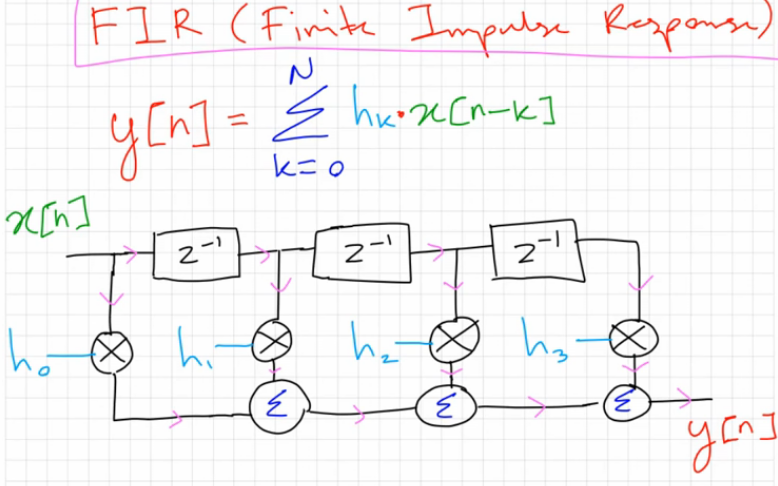 FIR (Finite Impulse Response)
N
y[n] = Σ hk·x[n-k]
k=0
x[n]
z⁻¹ z⁻¹ z⁻¹
h₀ h₁ h₂ h₃
Σ Σ Σ
y[n]